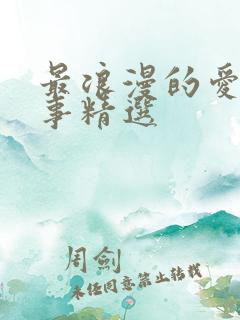 最浪漫的愛
事精選
周劍
未經同意禁止轉載